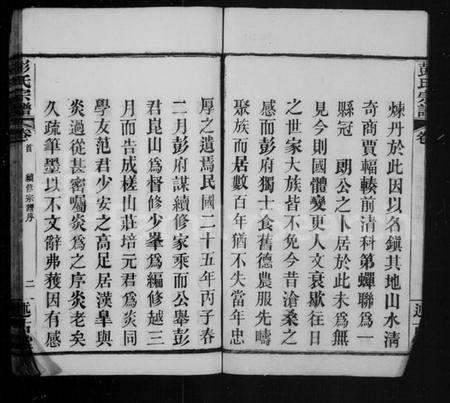 煉丹於此因以名鎮其地山水清
奇商賈輻輳前清科第蟬聯為一
縣冠 朗公之卜居於此未為無
見今則國體變更人文衰歇往日
之世家大族皆不免今昔滄桑之
感而彭府獨士食舊德農服先疇
聚族而居數百年猶不失當年忠
厚之遺焉民國二十五年丙子春
二月彭府謀續修家乘而公舉彭
君崑山為督修少峯為編修越三
月而告成槎山莊培元君為炎同
學友范君少安之高足居漢臯與
炎過從甚密囑炎為之序炎老矣
久疏筆墨以不文辭弗獲因有感
彭氏宗譜
卷首
續修宗譜序
二
彭氏宗譜
卷